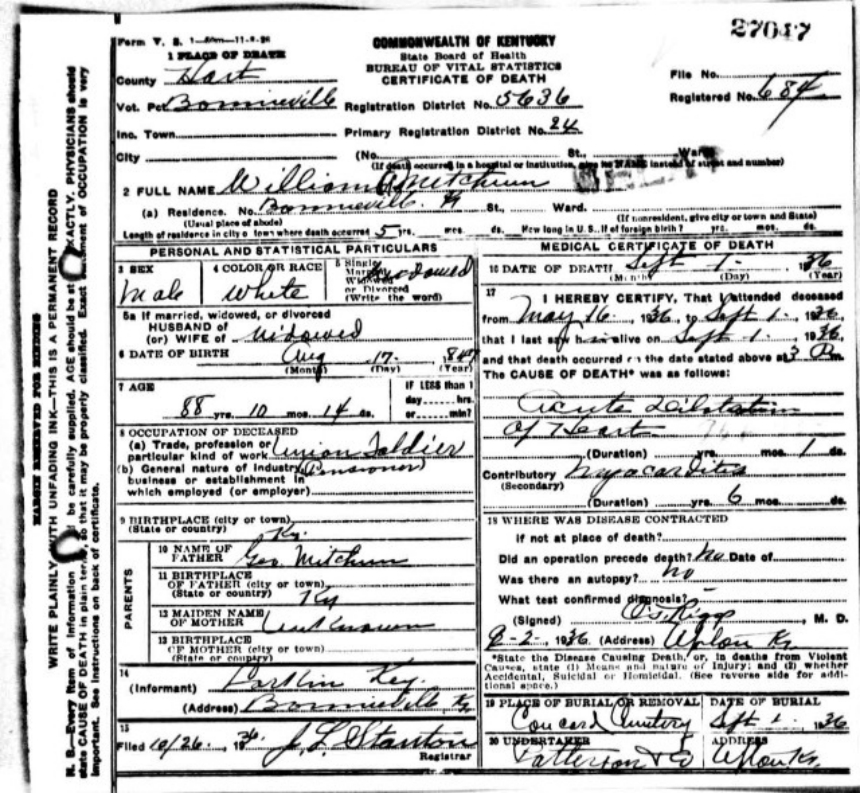 27047
Form V. S. 1-50m-11-8-26
COMMONWEALTH OF KENTUCKY
State Board of Health
BUREAU OF VITAL STATISTICS
CERTIFICATE OF DEATH
File No.
Registered No. 684
1 PLACE OF DEATH
County Hart
Vot. Pct Bonnieville Registration District No. 5636
Inc. Town Primary Registration District No. 24
City (No. St., Ward)
(If death occurred in a hospital or institution, give its NAME instead of street and number)
2 FULL NAME William Mitchum
(a) Residence. No. Bonnieville St., Ward.
(Usual place of abode) (If nonresident, give city or town and State)
Length of residence in city or town where death occurred 5 yrs. mos. ds. How long in U.S., if of foreign birth? yrs. mos. ds.
PERSONAL AND STATISTICAL PARTICULARS
3 SEX Male
4 COLOR OR RACE White
5 Single Married Widowed or Divorced (Write the word) Widowed
5a If married, widowed, or divorced
HUSBAND of
(or) WIFE of Widowed
6 DATE OF BIRTH Aug 17 1847
(Month) (Day) (Year)
7 AGE
88 yrs. 10 mos. 14 ds.
IF LESS than 1
day hrs.
or min?
8 OCCUPATION OF DECEASED
(a) Trade, profession or
particular kind of work Union Soldier
(b) General nature of Industry, (Pensioner)
business or establishment in
which employed (or employer)
9 BIRTHPLACE (city or town)
(State or country) Ky.
PARENTS
10 NAME OF
FATHER Geo. Mitchum
11 BIRTHPLACE
OF FATHER (city or town)
(State or country) Ky
12 MAIDEN NAME
OF MOTHER Unknown
13 BIRTHPLACE
OF MOTHER (city or town)
(State or country)
14
(Informant) Larkin Key.
(Address) Bonnieville, Ky
15
Filed 10/26, 1936. J. L. Stanton
Registrar
MEDICAL CERTIFICATE OF DEATH
16 DATE OF DEATH Sept 1 - 1936
(Month) (Day) (Year)
17 I HEREBY CERTIFY, That I attended deceased
from May 16, 1936, to Sept 1 - 1936,
that I last saw him alive on Sept 1 - 1936,
and that death occurred on the date stated above at 3 Pm.
The CAUSE OF DEATH* was as follows:
Acute Dilatation
Of Heart
(Duration) yrs. mos. 1 ds.
Contributory Myocarditis
(Secondary)
(Duration) yrs. 6 mos. ds.
18 WHERE WAS DISEASE CONTRACTED
If not at place of death?
Did an operation precede death? No Date of
Was there an autopsy? no
What test confirmed diagnosis? -
(Signed) Riggs, M. D.
9-2-, 1936 (Address) Upton Ky
*State the Disease Causing Death, or, in deaths from Violent
Causes, state (1) Means and nature of Injury; and (2) whether
Accidental, Suicidal or Homicidal. (See reverse side for addi-
tional space.)
19 PLACE OF BURIAL OR REMOVAL Concord Cemetery
DATE OF BURIAL Sept 1. 1936
20 UNDERTAKER Patterson &
ADDRESS Upton Ky.
MARGIN RESERVED FOR BINDING
WRITE PLAINLY WITH UNFADING INK—THIS IS A PERMANENT RECORD
N. B.—Every item of information be carefully supplied. AGE should be st EXACTLY, PHYSICIANS should
state CAUSE OF DEATH in plain terms, so that it may be properly classified. Exact ment of OCCUPATION is very
important. See instructions on back of certificate.